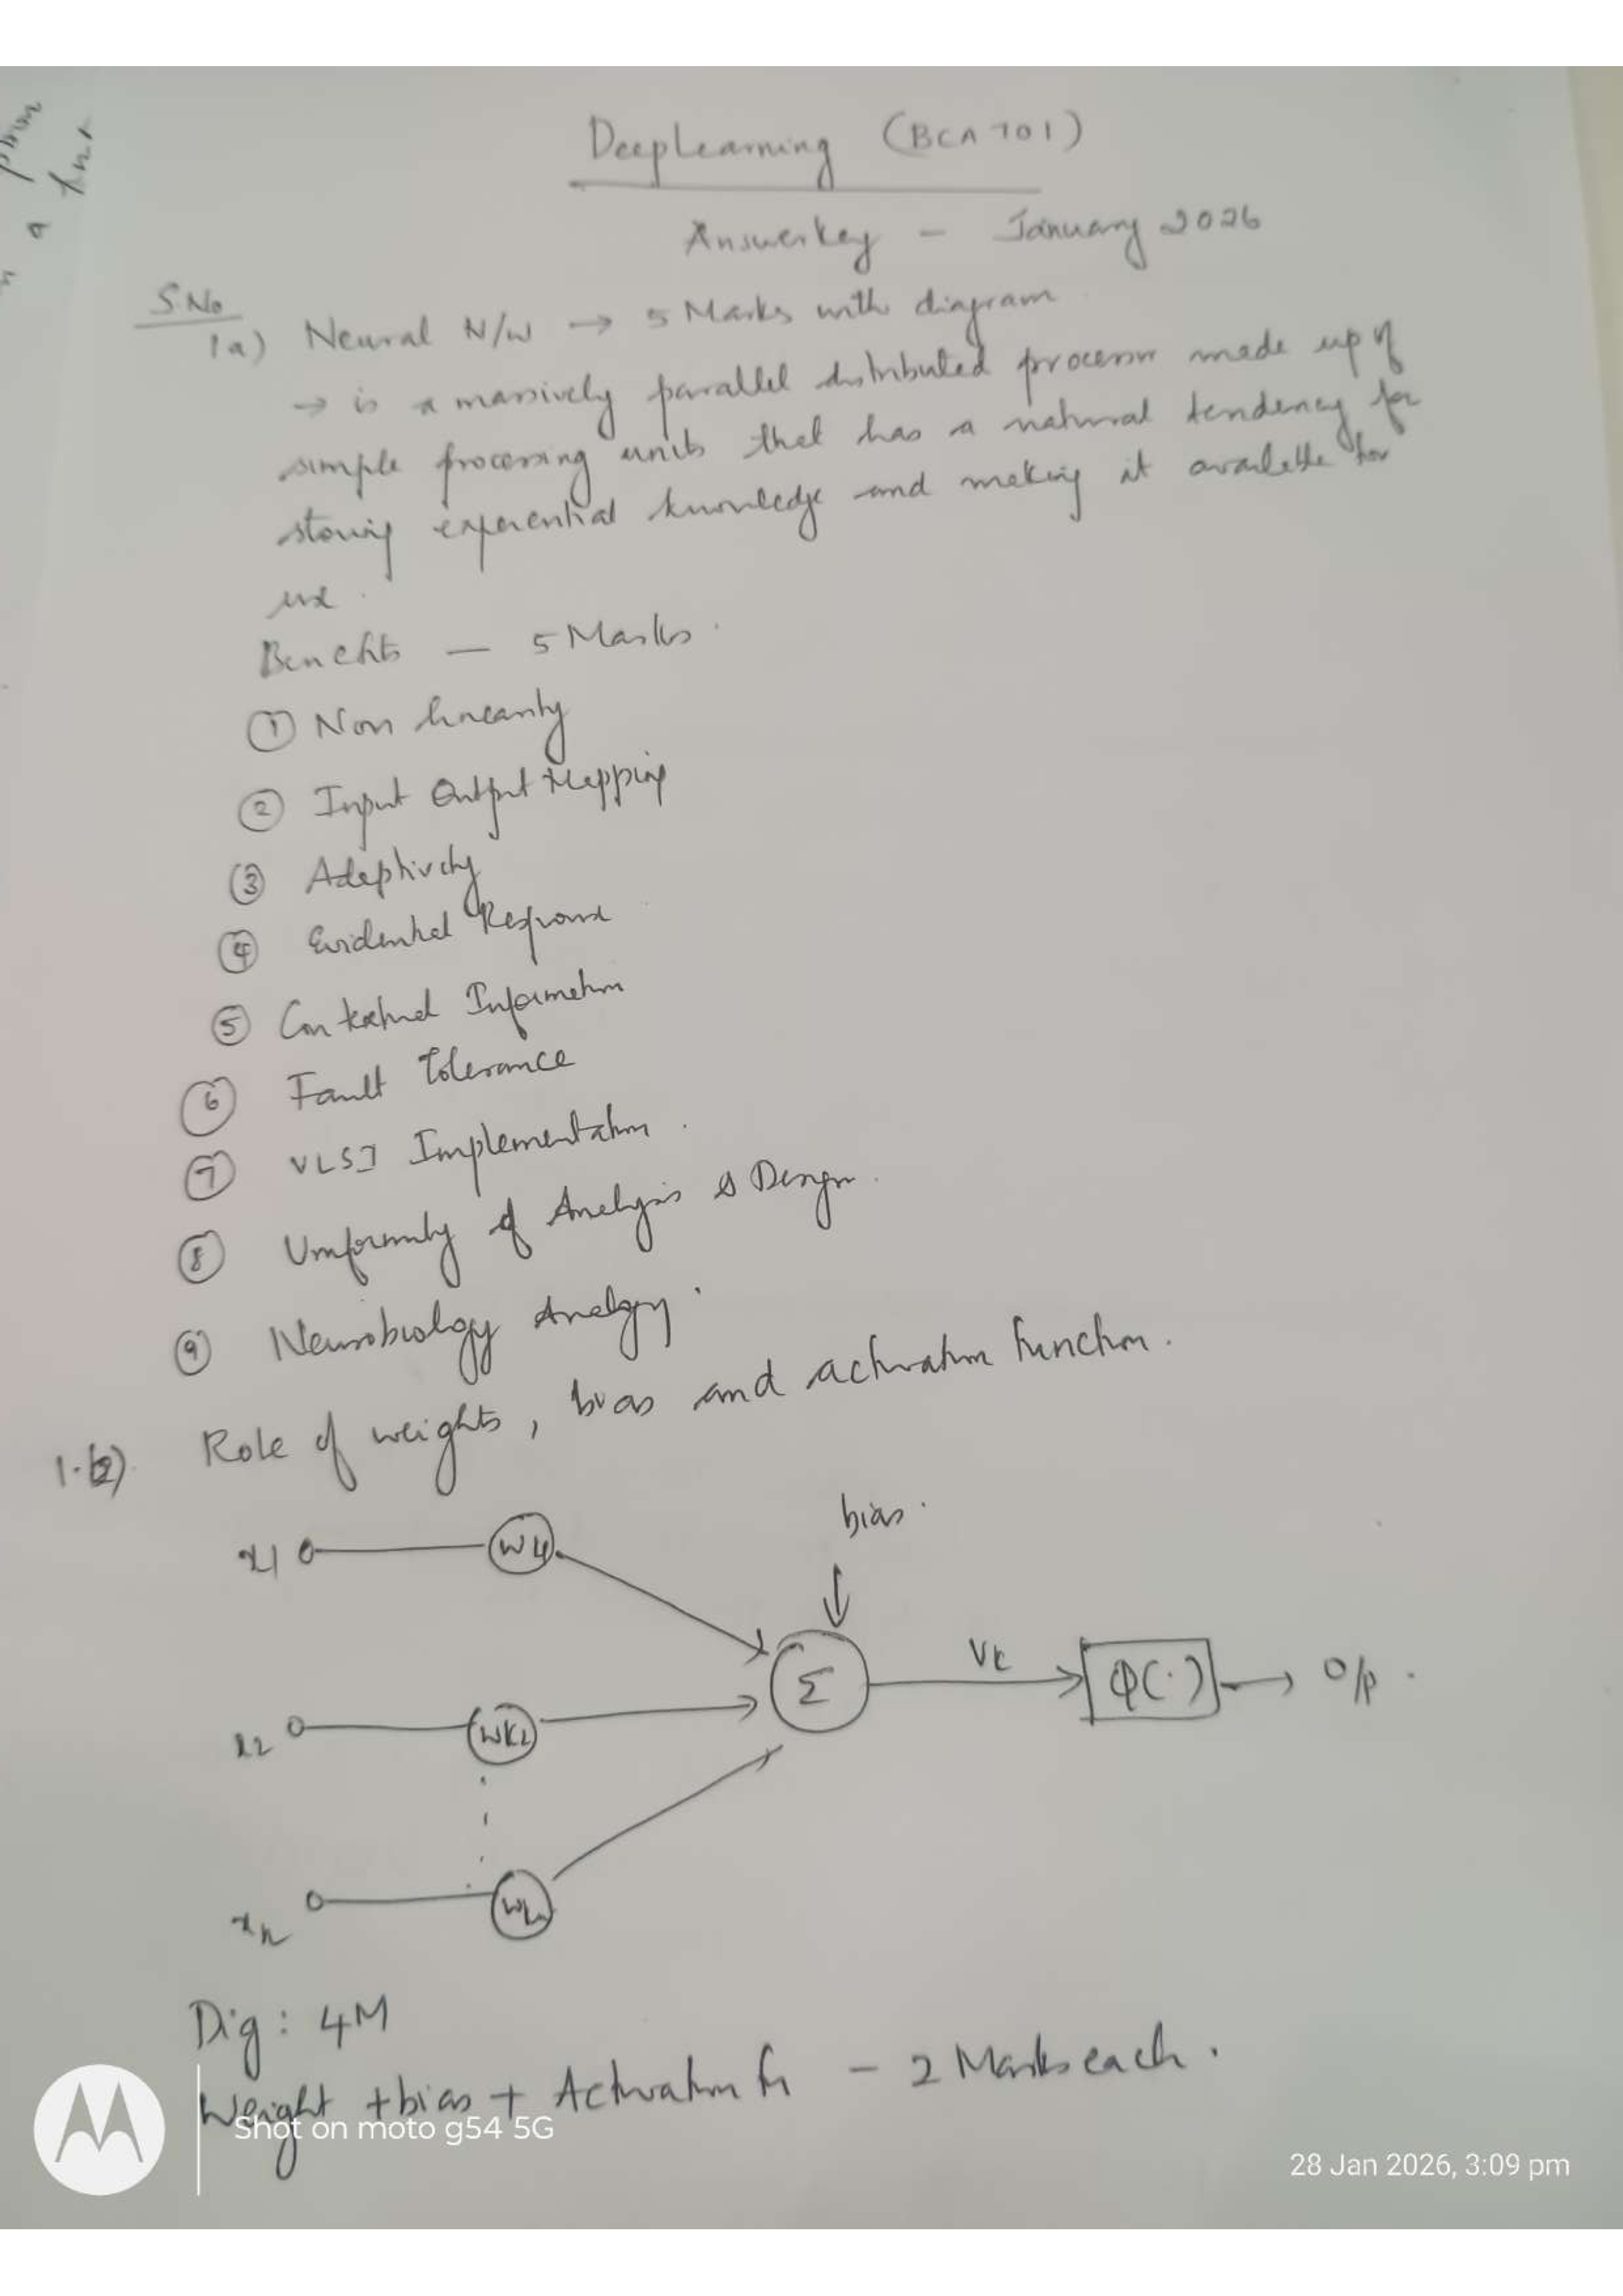 Deep Learning (BCA701)
Answerkey - January 2026
S.No
1a) Neural N/W → 5 Marks with diagram
→ is a massively parallel distributed processor made up of
simple processing units that has a natural tendency for
storing experential knowledge and making it available for
use.
Benefits — 5 Marks.
① Non linearity
② Input Output Mapping
③ Adaptivity
④ Evidential Response
⑤ Contextual Information
⑥ Fault Tolerance
⑦ VLSI Implementation.
⑧ Uniformity of Analysis & Design.
⑨ Neurobiology Analogy.
1.(b) Role of weights, bias and activation function.
bias.
x1 wk1
Σ Vk φ(·) → O/p.
x2 wk2
xn wkn
Dig: 4M
Weight + bias + Activation fn - 2 Marks each.
Shot on moto g54 5G
28 Jan 2026, 3:09 pm